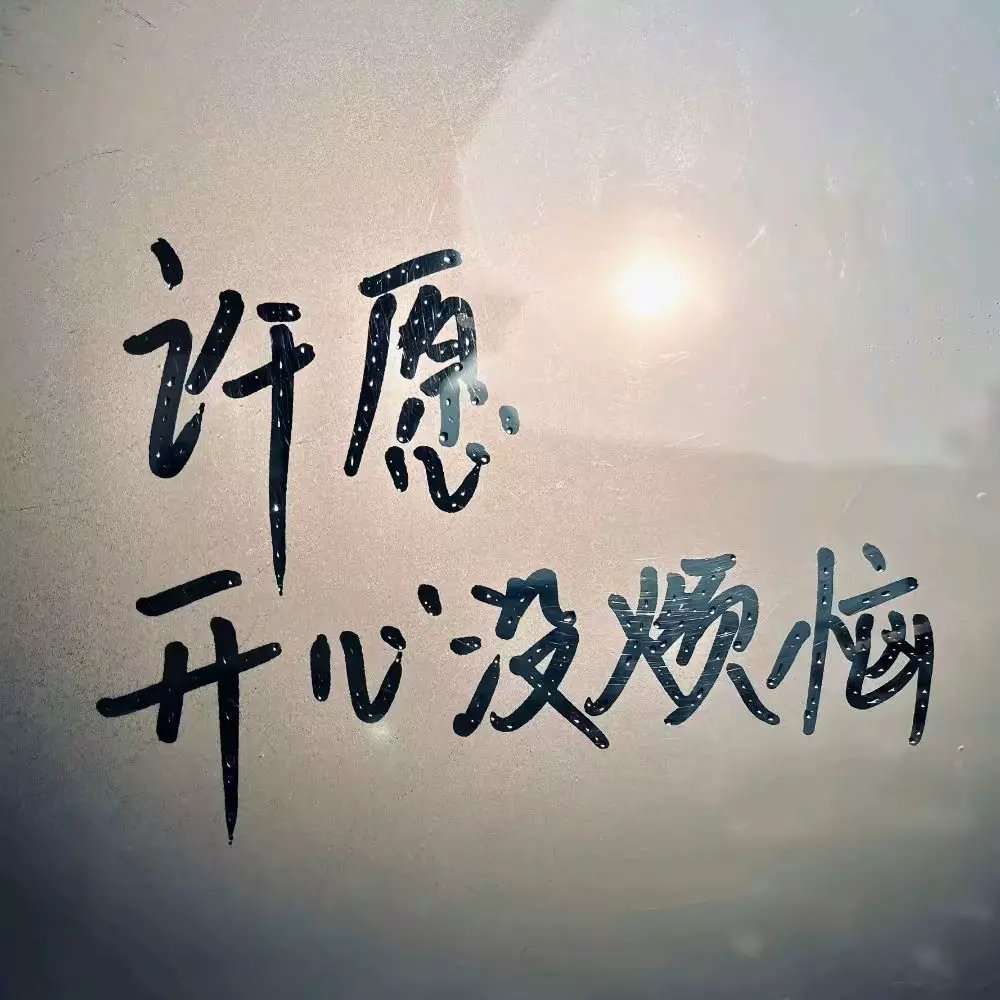 许愿
开心没烦恼